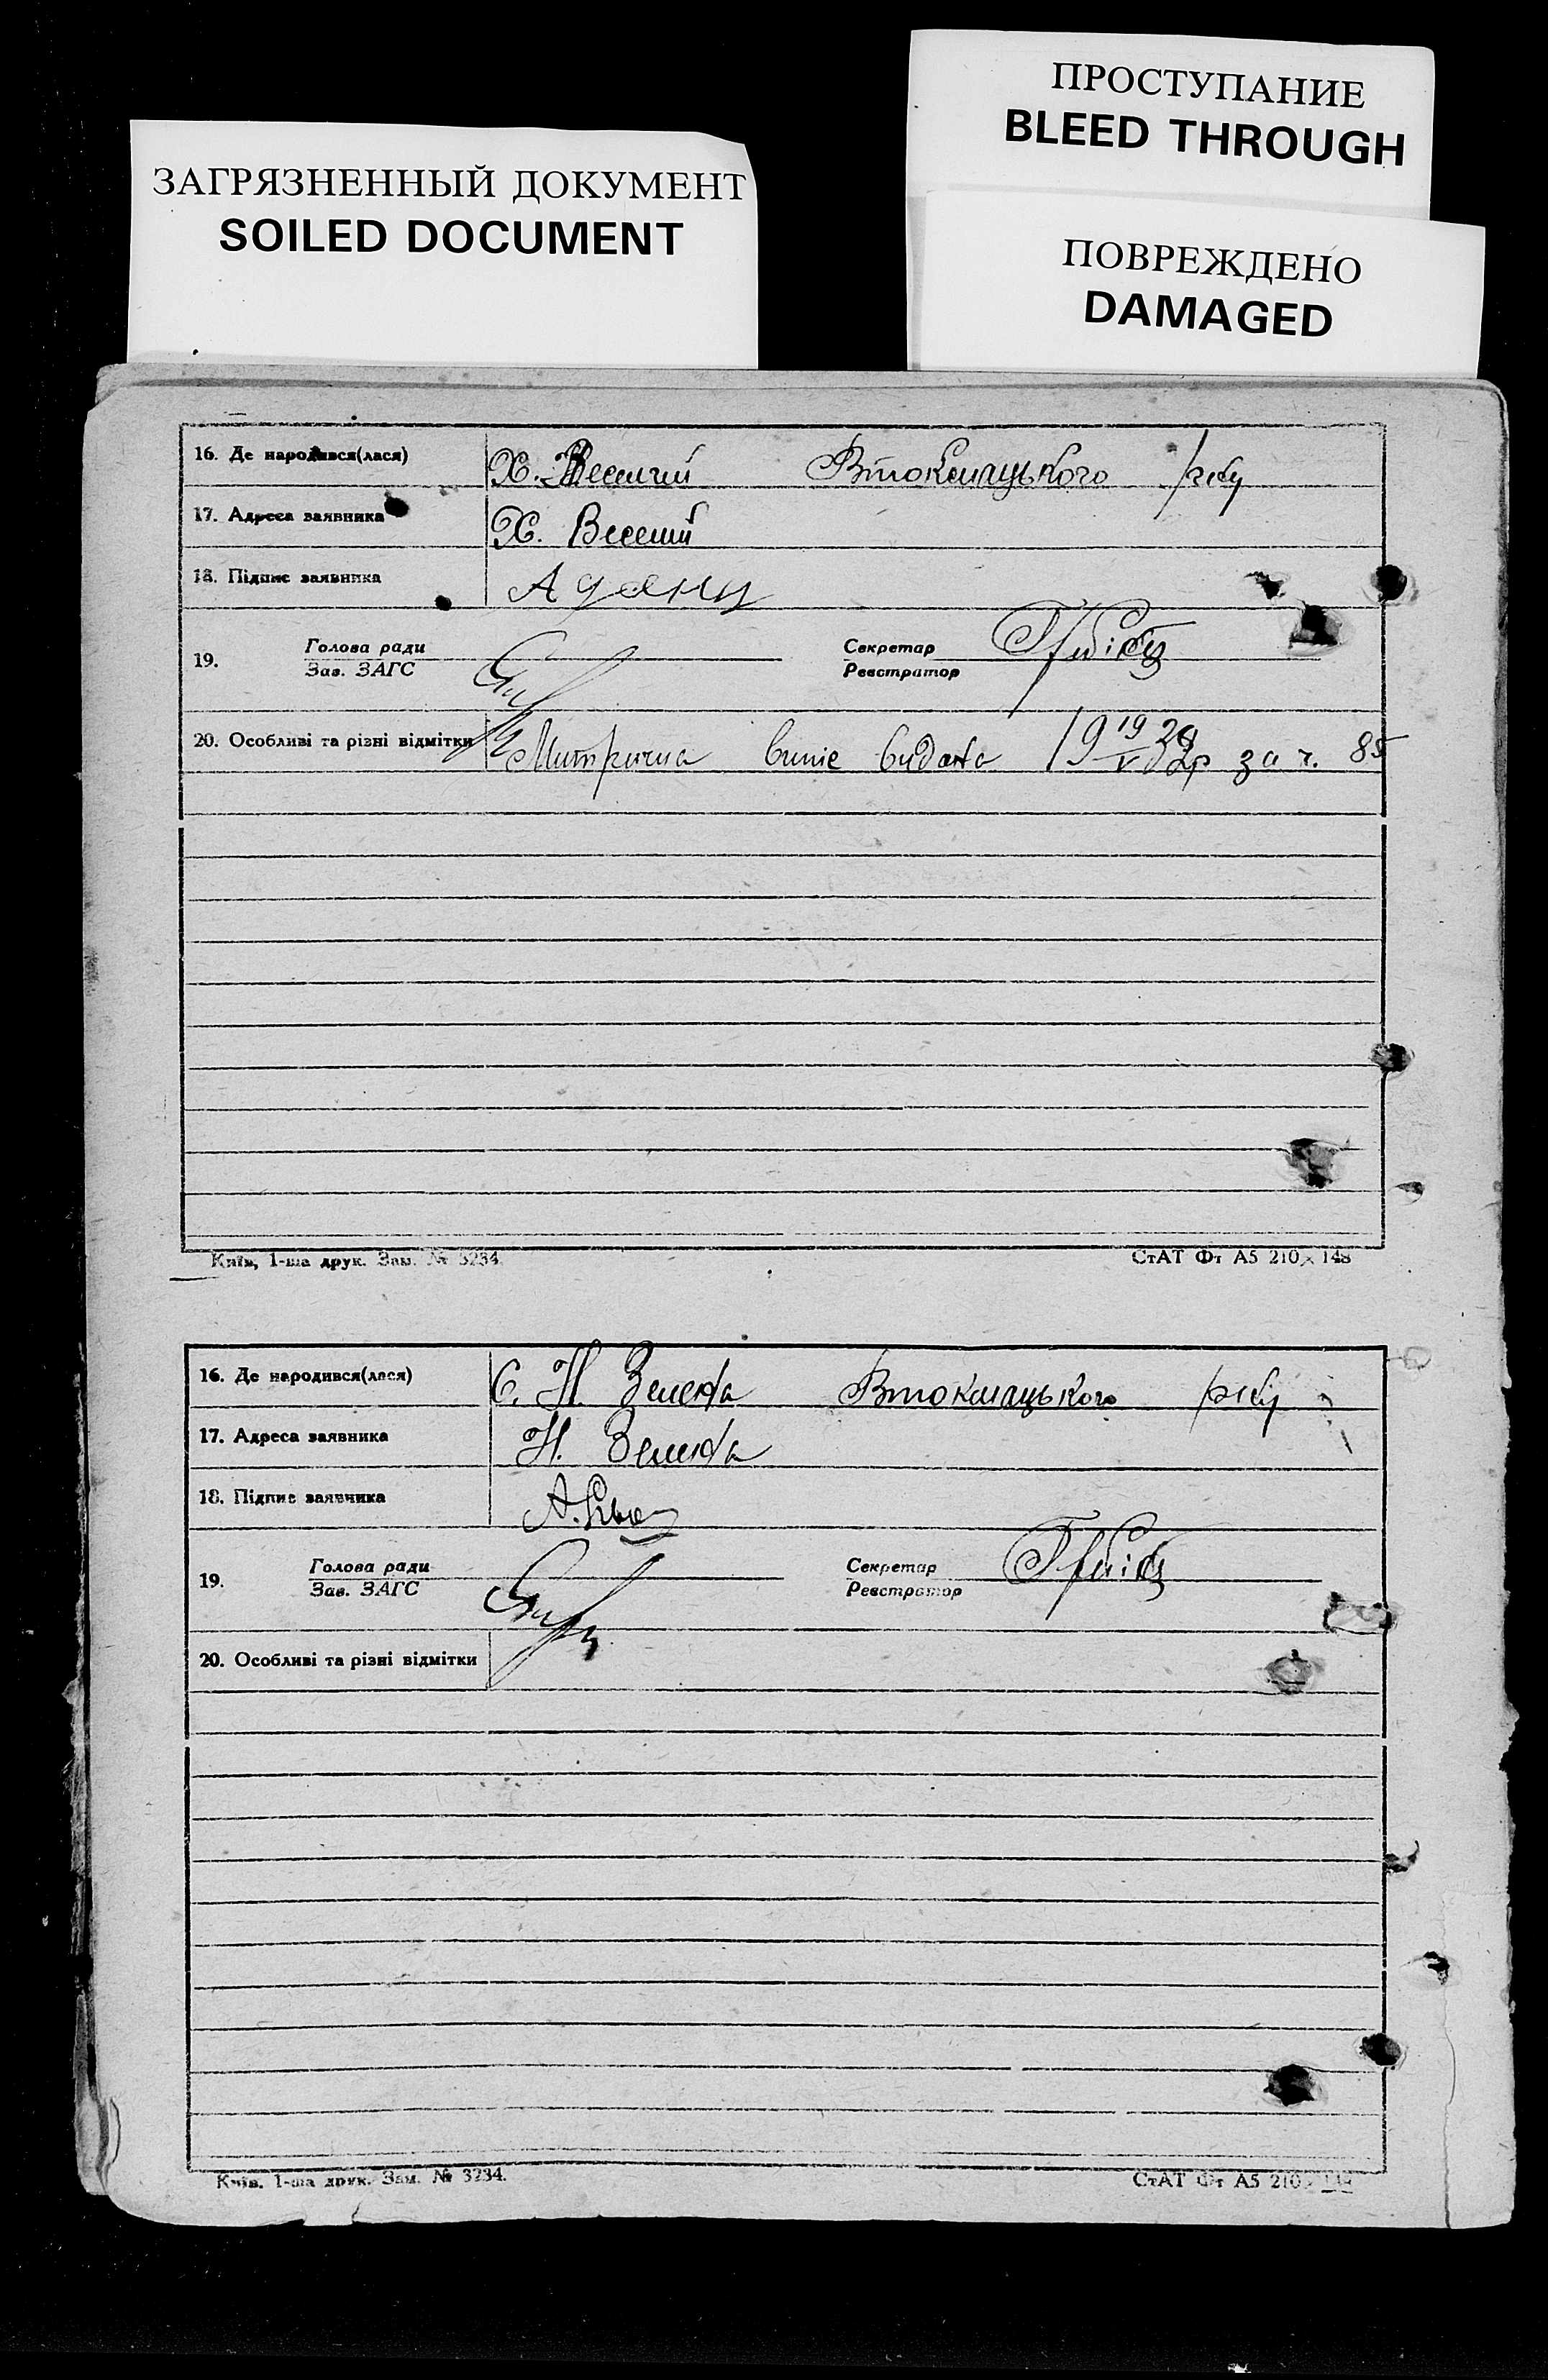 ПРОСТУПАНИЕ
BLEED THROUGH
ЗАГРЯЗНЕННЫЙ ДОКУМЕНТ
SOILED DOCUMENT
ПОВРЕЖДЕНО
DAMAGED
16. Де народився(лася) Х. Веселий Втокмацького р-ну
17. Адреса заявника Х. Веселий
18. Підпис заявника
Голова ради Секретар
19.
Зав. ЗАГС Реєстратор
20. Особливі та різні відмітки Митрична видана за ч. 85
Київ, 1-ша друк. Зам. № 3234. СтАТ Фт А5 210×148
16. Де народився(лася) С. Н. Зелена Втокмацького р-ну
17. Адреса заявника Н. Зелена
18. Підпис заявника
Голова ради Секретар
19.
Зав. ЗАГС Реєстратор
20. Особливі та різні відмітки
Київ. 1-ша друк. Зам. № 3234. СтАТ Фт А5 210×148